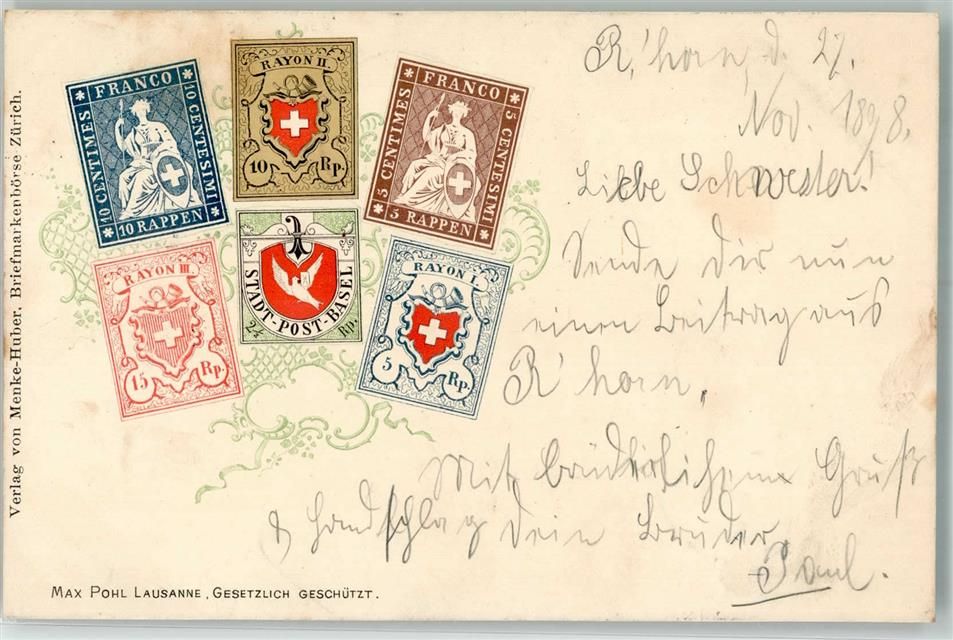 Verlag von Menke-Huber, Briefmarkenbörse Zürich.
FRANCO
10 CENTIMES
10 CENTESIMI
10 RAPPEN
RAYON II.
10 Rp.
FRANCO
5 CENTIMES
5 CENTESIMI
5 RAPPEN
RAYON III
15 Rp.
STADT-POST-BASEL
2½ Rp.
RAYON I.
5 Rp.
R'horn, d. 27.
Nov. 1898.
Liebe Schwester!
Sende dir nun
einen Beitrag aus
R'horn,
Mit brüderlichem Gruß
& Handschlag dein Bruder
Paul.
MAX POHL LAUSANNE, GESETZLICH GESCHÜTZT.